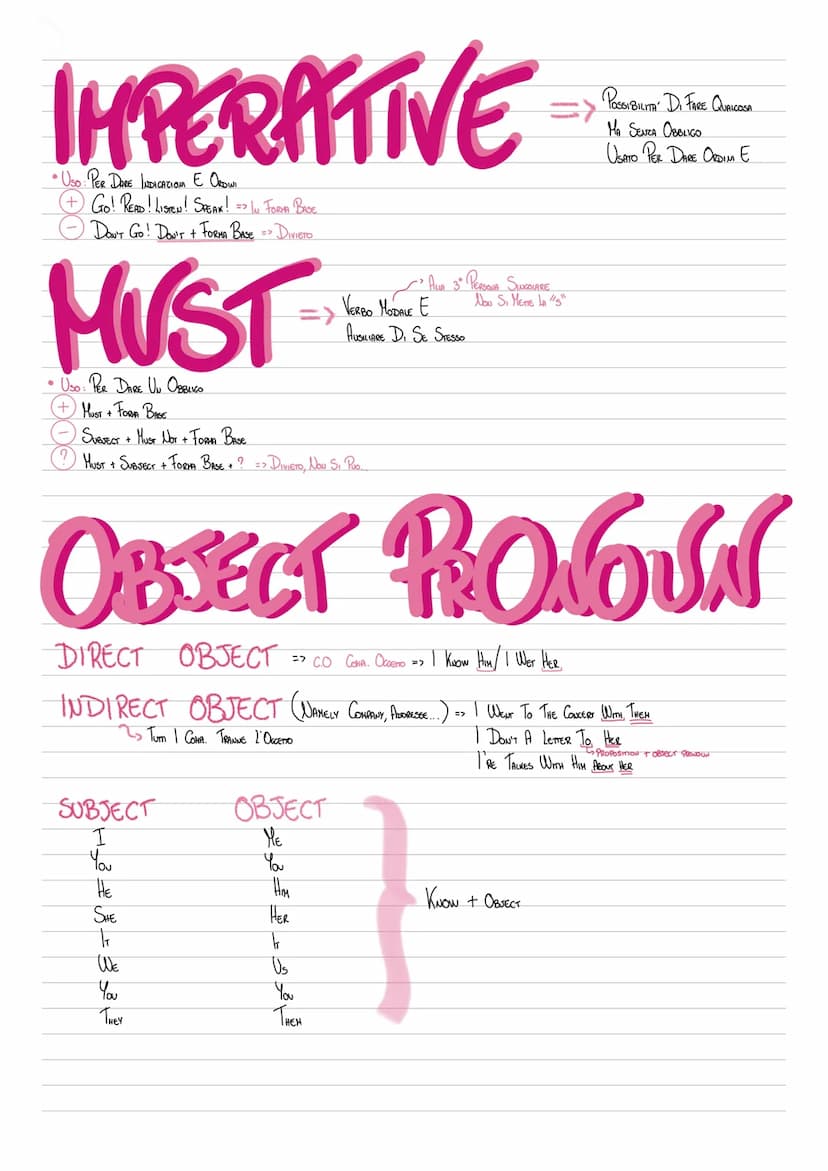 IMPERATIVE => POSSIBILITA' DI FARE QUALCOSA
MA SENZA OBBLIGO
USATO PER DARE ORDINI E
• USO: PER DARE INDICAZIONI E ORDINI
+ GO! READ! LISTEN! SPEAK! => IN FORMA BASE
- DON'T GO! DON'T + FORMA BASE => DIVIETO
MUST => VERBO MODALE E
ALLA 3ª PERSONA SINGOLARE
NON SI METTE LA "S"
AUSILIARE DI SE STESSO
• USO: PER DARE UN OBBLIGO
+ MUST + FORMA BASE
- SUBJECT + MUST NOT + FORMA BASE
? MUST + SUBJECT + FORMA BASE + ? => DIVIETO, NON SI PUO...
OBJECT PRONOUN
DIRECT OBJECT => C.O COMP. OGGETTO => I KNOW HIM/ I WET HER
INDIRECT OBJECT (NAMELY COMPANY, ADDRESEE...) => I WENT TO THE CONCERT WITH THEM
TUTTI I COMP. TRANNE L'OGGETTO
I DON'T A LETTER TO HER
PROPOSITION + OBJECT PRONOUN
I'RE TALKES WITH HIM ABOUT HER
SUBJECT OBJECT
I ME
YOU YOU
HE HIM
SHE HER
IT IT
WE US
YOU YOU
THEY THEM
KNOW + OBJECT